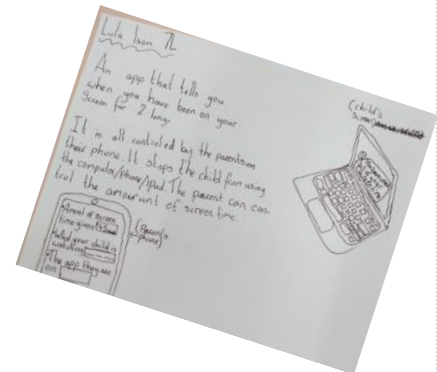 Lula Ison 7L
An app that tells you
when you have been on your
screen for 2 long.
It is all controled by the parents on
their phone. It stops the child from using
the computer/phone/ipad The parent can con-
trol the amount of screen time.
(child's
Amont of screen
time given:
what your child is
watching
The app they are
on:
(Parent's
phone)